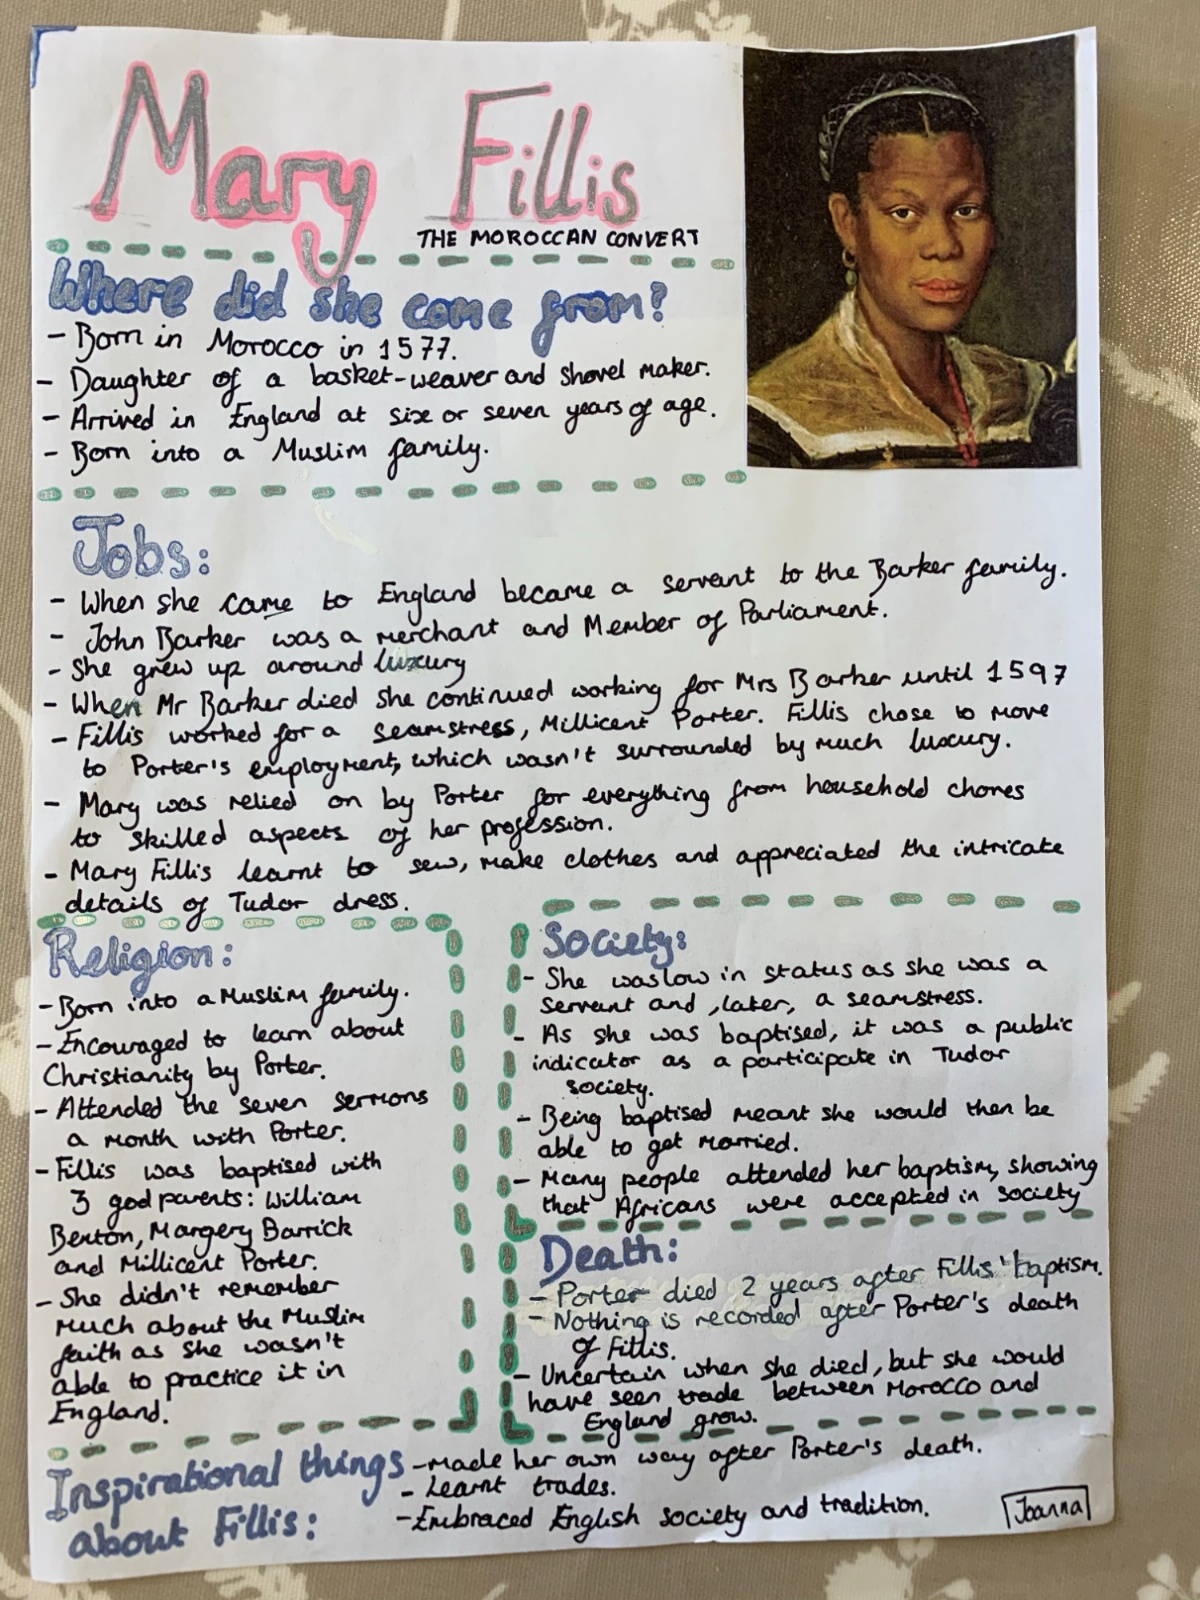 Mary Fillis
THE MOROCCAN CONVERT
Where did she come from?
- Born in Morocco in 1577.
- Daughter of a basket-weaver and shovel maker.
- Arrived in England at six or seven years of age.
- Born into a Muslim family.
Jobs:
- When she came to England became a servant to the Barker family.
- John Barker was a merchant and Member of Parliament.
- She grew up around luxury
- When Mr Barker died she continued working for Mrs Barker until 1597
- Fillis worked for a seamstress, Millicent Porter. Fillis chose to move
to Porter's employment, which wasn't surrounded by much luxury.
- Mary was relied on by Porter for everything from household chores
to skilled aspects of her profession.
- Mary Fillis learnt to sew, make clothes and appreciated the intricate
details of Tudor dress.
Religion:
- Born into a Muslim family.
- Encouraged to learn about
Christianity by Porter.
- Attended the seven sermons
a month with Porter.
- Fillis was baptised with
3 god parents: William
Benton, Margery Barrick
and Millicent Porter.
- She didn't remember
much about the Muslim
faith as she wasn't
able to practice it in
England.
Society:
- She was low in status as she was a
servant and, later, a seamstress.
- As she was baptised, it was a public
indicator as a participate in Tudor
society.
- Being baptised meant she would then be
able to get married.
- Many people attended her baptism, showing
that Africans were accepted in society
Death:
- Porter died 2 years after Fillis' baptism.
- Nothing is recorded after Porter's death
of Fillis.
- Uncertain when she died, but she would
have seen trade between Morocco and
England grow.
Inspirational things
about Fillis:
- made her own way after Porter's death.
- Learnt trades.
- Embraced English society and tradition.
Joanna